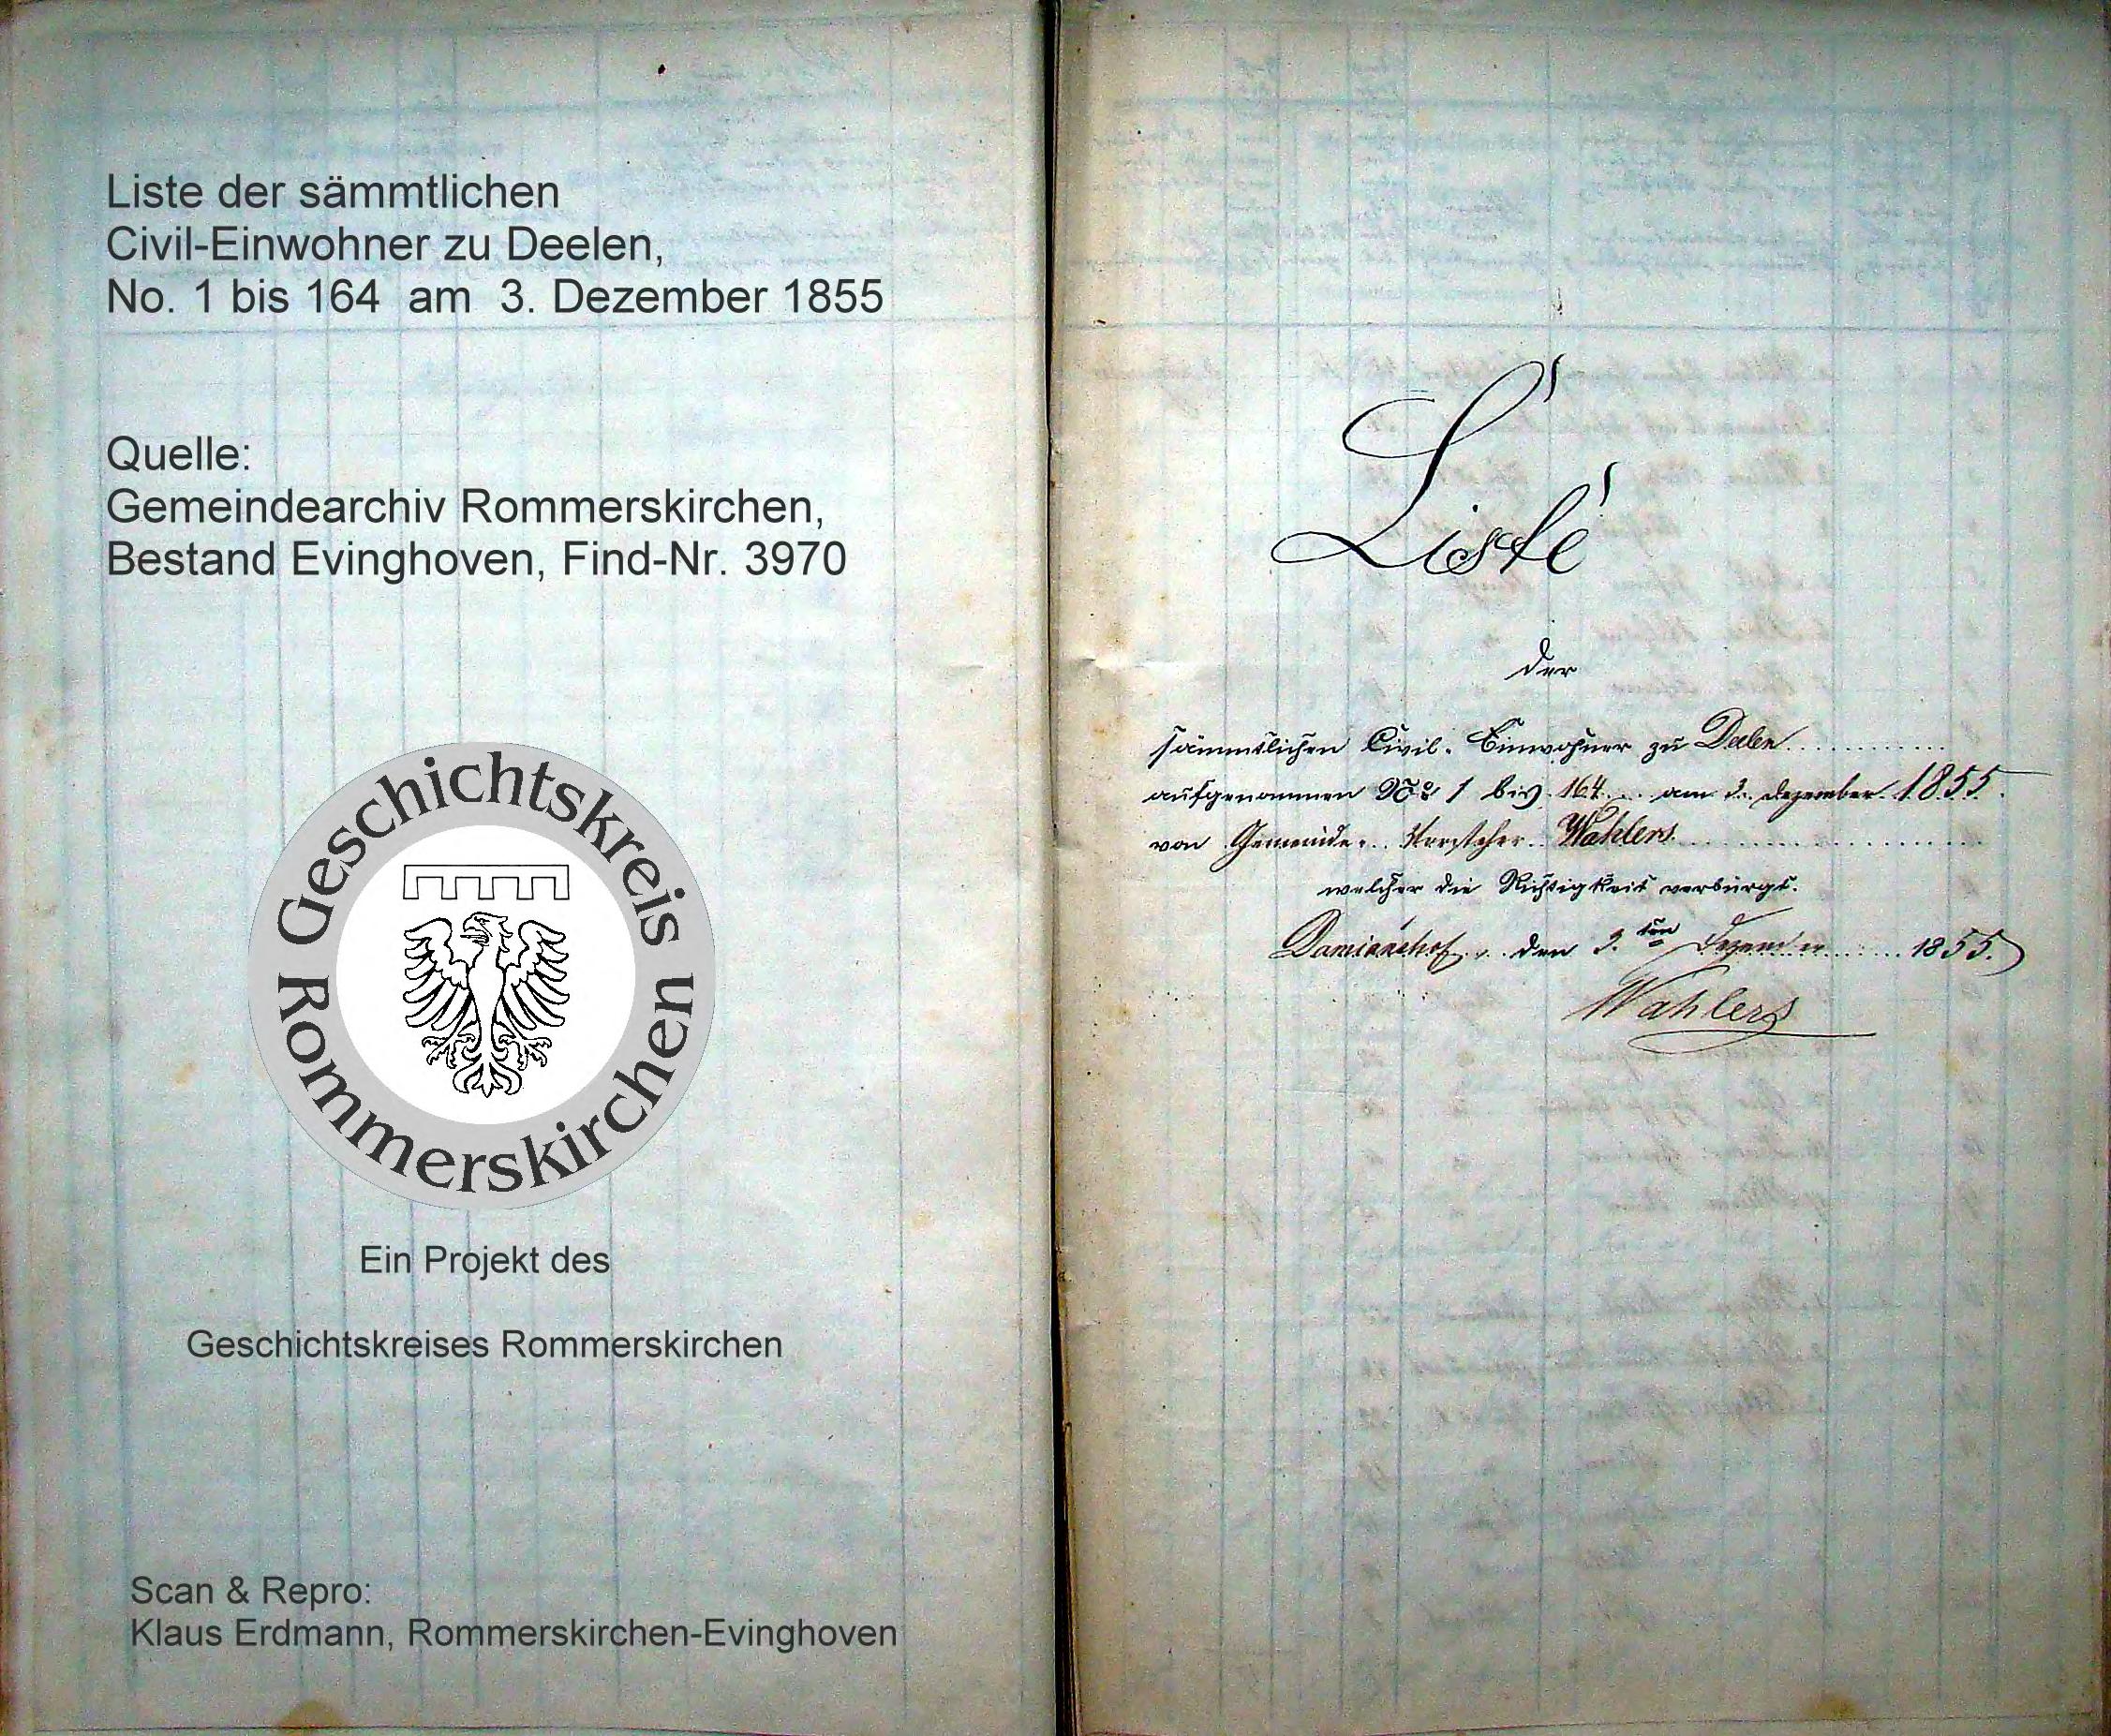 Liste der sämmtlichen
Civil-Einwohner zu Deelen,
No. 1 bis 164 am 3. Dezember 1855
Quelle:
Gemeindearchiv Rommerskirchen,
Bestand Evinghoven, Find-Nr. 3970
Geschichtskreis
Rommerskirchen
Ein Projekt des
Geschichtskreises Rommerskirchen
Scan & Repro:
Klaus Erdmann, Rommerskirchen-Evinghoven
Liste
der
sämmtlichen Civil-Einwohner zu Deelen
aufgenommen No 1 bis 164 am 3. Dezember 1855.
von Gemeinde-Vorsteher Wahlers
welcher die Richtigkeit verbürgt.
Damianshof, den 3.ten Dezember 1855.
Wahlers